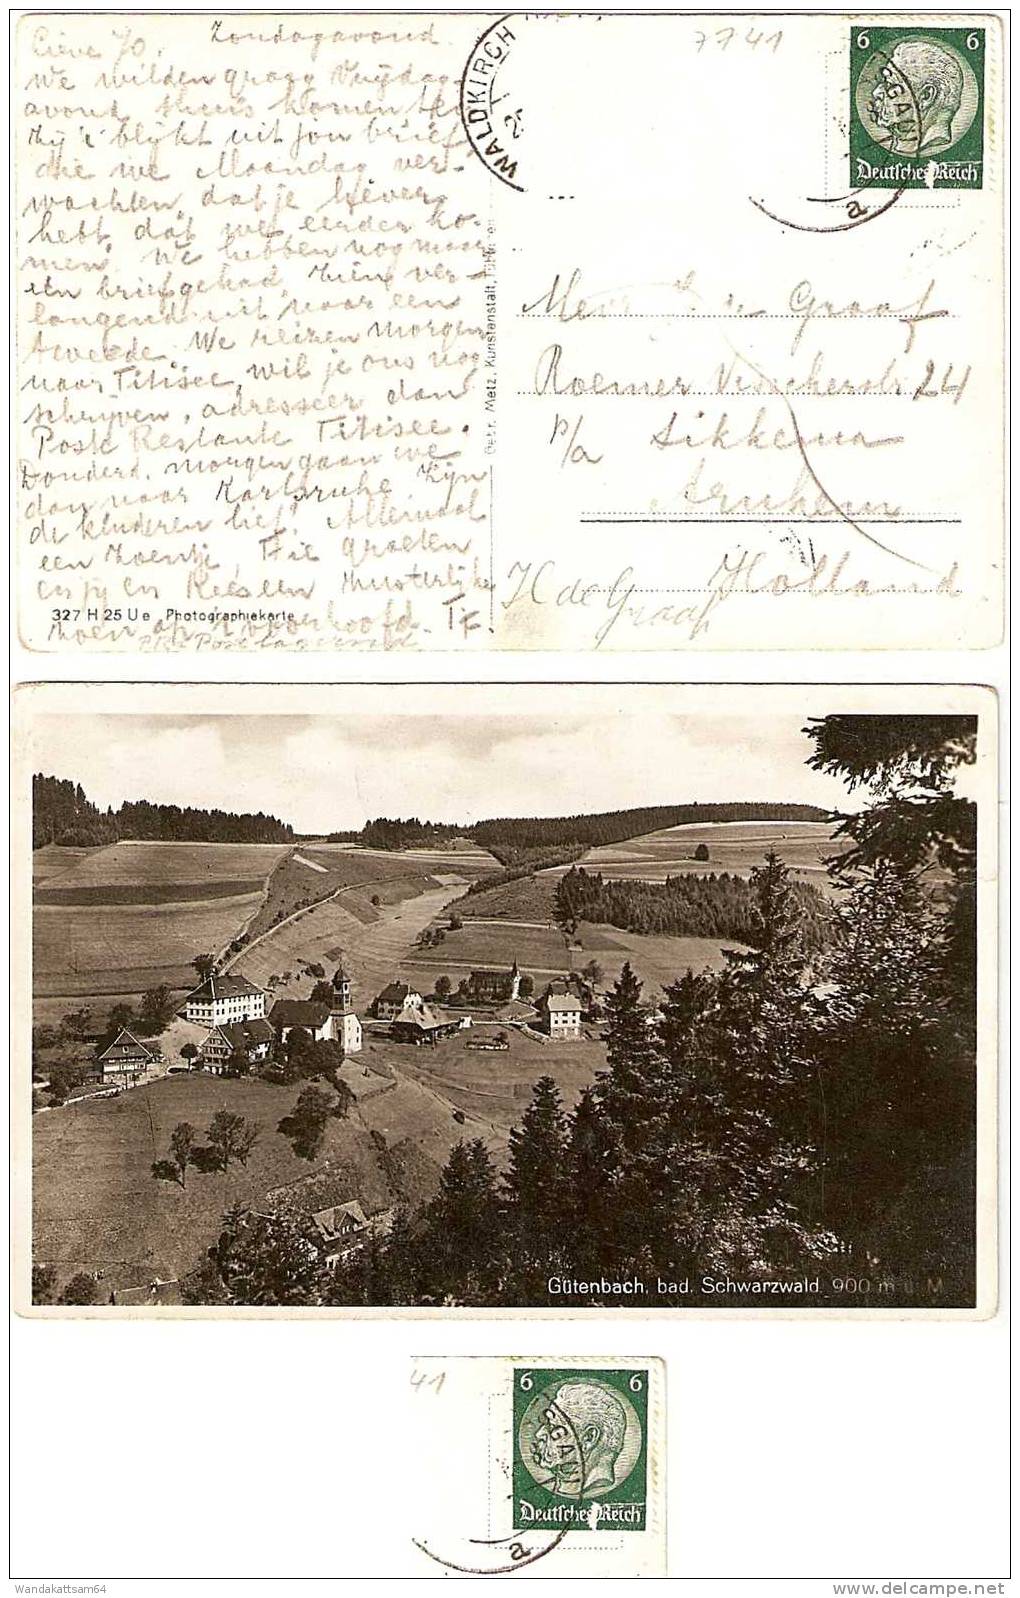 Zondagavond.
Lieve Jo.
We wilden graag Vrijdag-
avond thuis komen
Zij 't blijkt uit jou brief
die we Maandag ver-
wachten, dat je liever
hebt, dat we eerder ko-
men. We hebben nog maar
een brief gehad, zien ver-
langend uit naar een
tweede. We reizen morgen
naar Titisee, wil je ons nog
schrijven, adresseer dan
Poste Restante Titisee.
Donderd. morgen gaan we
dan naar Karlsruhe. Zijn
de kinderen lief? Allemaal
een zoentje, groeten
en Kees een
zoen op 't voorhoofd.
327 H 25 U e Photographiekarte
Gebr. Metz, Kunstanstalt, Tübingen
WALDKIRCH
7741
6 6
Deutsches Reich
a
Graaf
Roemer Visscherstr. 24
p/a Sikkema
Arnhem
Holland
H de Graaf
Gütenbach, bad. Schwarzwald 900 m ü. M.
41
6 6
Deutsches Reich
a
Wandakattsam64
delcampe.net